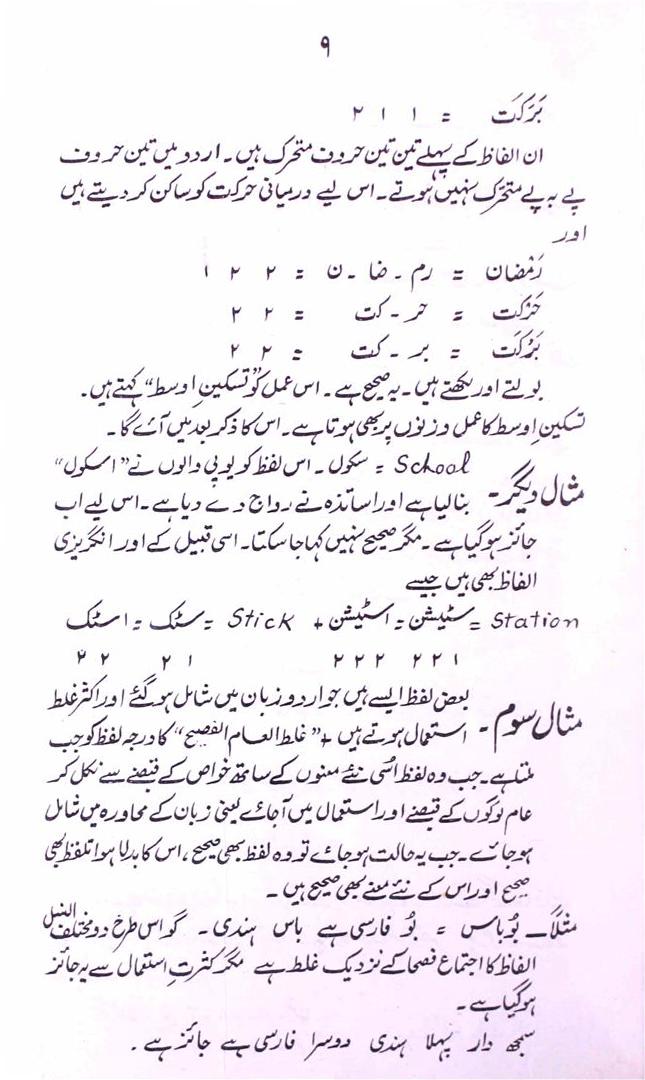 ۹
بَرَکَت = ۱ ۱ ۲
ان الفاظ کے پہلے تین تین حروف متحرک ہیں۔ اردو میں تین حروف
پے بہ پے متحرّک نہیں ہوتے۔ اس لیے درمیانی حرکت کو ساکن کر دیتے ہیں
اور
رَمْضان = رم ۔ ضا ۔ ن = ۲ ۲ ۱
حَرْکت = حر ۔ کت = ۲ ۲
بَرْکَت = بر ۔ کت = ۲ ۲
بولتے اور لکھتے ہیں۔ یہ صحیح ہے۔ اس عمل کو ”تسکینِ اوسط“ کہتے ہیں۔
تسکینِ اوسط کا عمل وزنوں پر بھی ہوتا ہے۔ اس کا ذکر بعد میں آئے گا۔
مثال دیگر۔ School = سکول۔ اس لفظ کو یوپی والوں نے ”اسکول“
بنا لیا ہے اور اساتذہ نے رواج دے دیا ہے۔ اس لیے اب
جائز ہو گیا ہے۔ مگر صحیح نہیں کہا جا سکتا۔ اسی قبیل کے اور انگریزی
الفاظ بھی ہیں جیسے
Station = سٹیشن = اسٹیشن + Stick = سٹک = اسٹک
۱ ۲ ۲ ۲ ۲ ۲ ۱ ۲ ۲ ۲
مثال سوم۔ بعض لفظ ایسے ہیں جو اردو زبان میں شامل ہو گئے اور اکثر غلط
استعمال ہوتے ہیں + ”غلط العام الفصیح“ کا درجہ لفظ کو جب
ملتا ہے۔ جب وہ لفظ اُسی نئے معنوں کے ساتھ خواص کے قبضے سے نکل کر
عام لوگوں کے قبضے اور استعمال میں آ جائے یعنی زبان کے محاورہ میں شامل
ہو جائے۔ جب یہ حالت ہو جائے تو وہ لفظ بھی صحیح، اس کا بدلا ہوا تلفظ بھی
صحیح اور اس کے نئے معنے بھی صحیح ہیں۔
مثلاً۔ بُو باس = بُو فارسی ہے باس ہندی۔ گو اس طرح دو مختلف النسل
الفاظ کا اجتماع فصحا کے نزدیک غلط ہے مگر کثرتِ استعمال سے یہ جائز
ہو گیا ہے۔
سمجھ دار پہلا ہندی دوسرا فارسی ہے جائز ہے۔